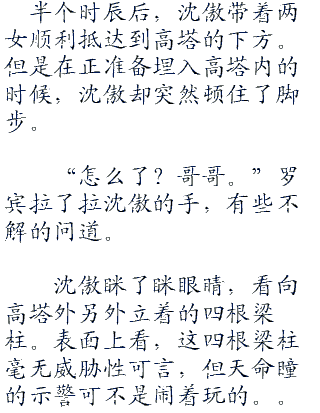 半个时辰后，沈傲带着两
女顺利抵达到高塔的下方。
但是在正准备埋入高塔内的
时候，沈傲却突然顿住了脚
步。
“怎么了？哥哥。”罗
宾拉了拉沈傲的手，有些不
解的问道。
沈傲眯了眯眼睛，看向
高塔外另外立着的四根梁
柱。表面上看，这四根梁柱
毫无威胁性可言，但天命瞳
的示警可不是闹着玩的。。